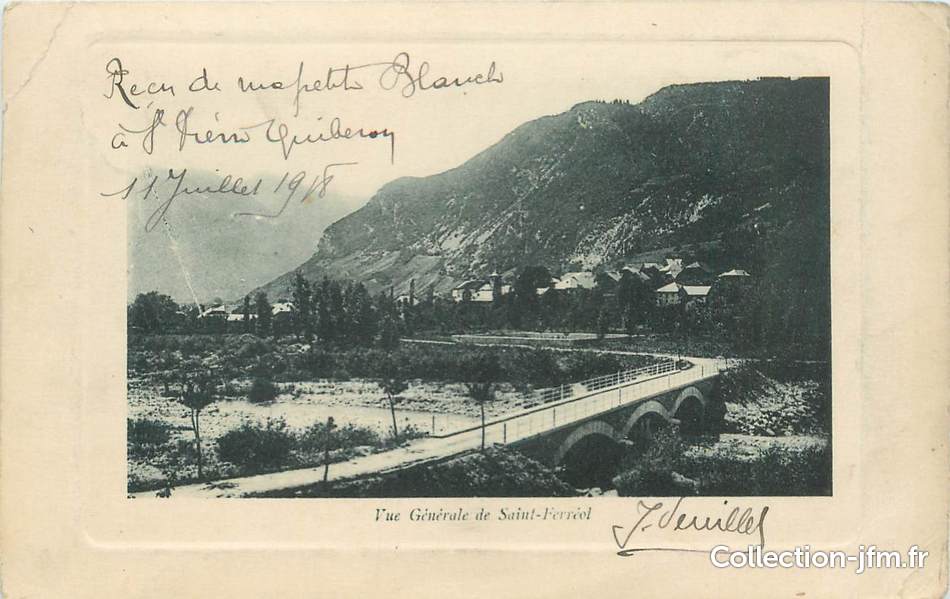 Reçu de ma petite Blanch
à St Pierre Quiberon
11 Juillet 1918
Vue Générale de Saint-Ferréol
J. Deuillet
Collection-jfm.fr